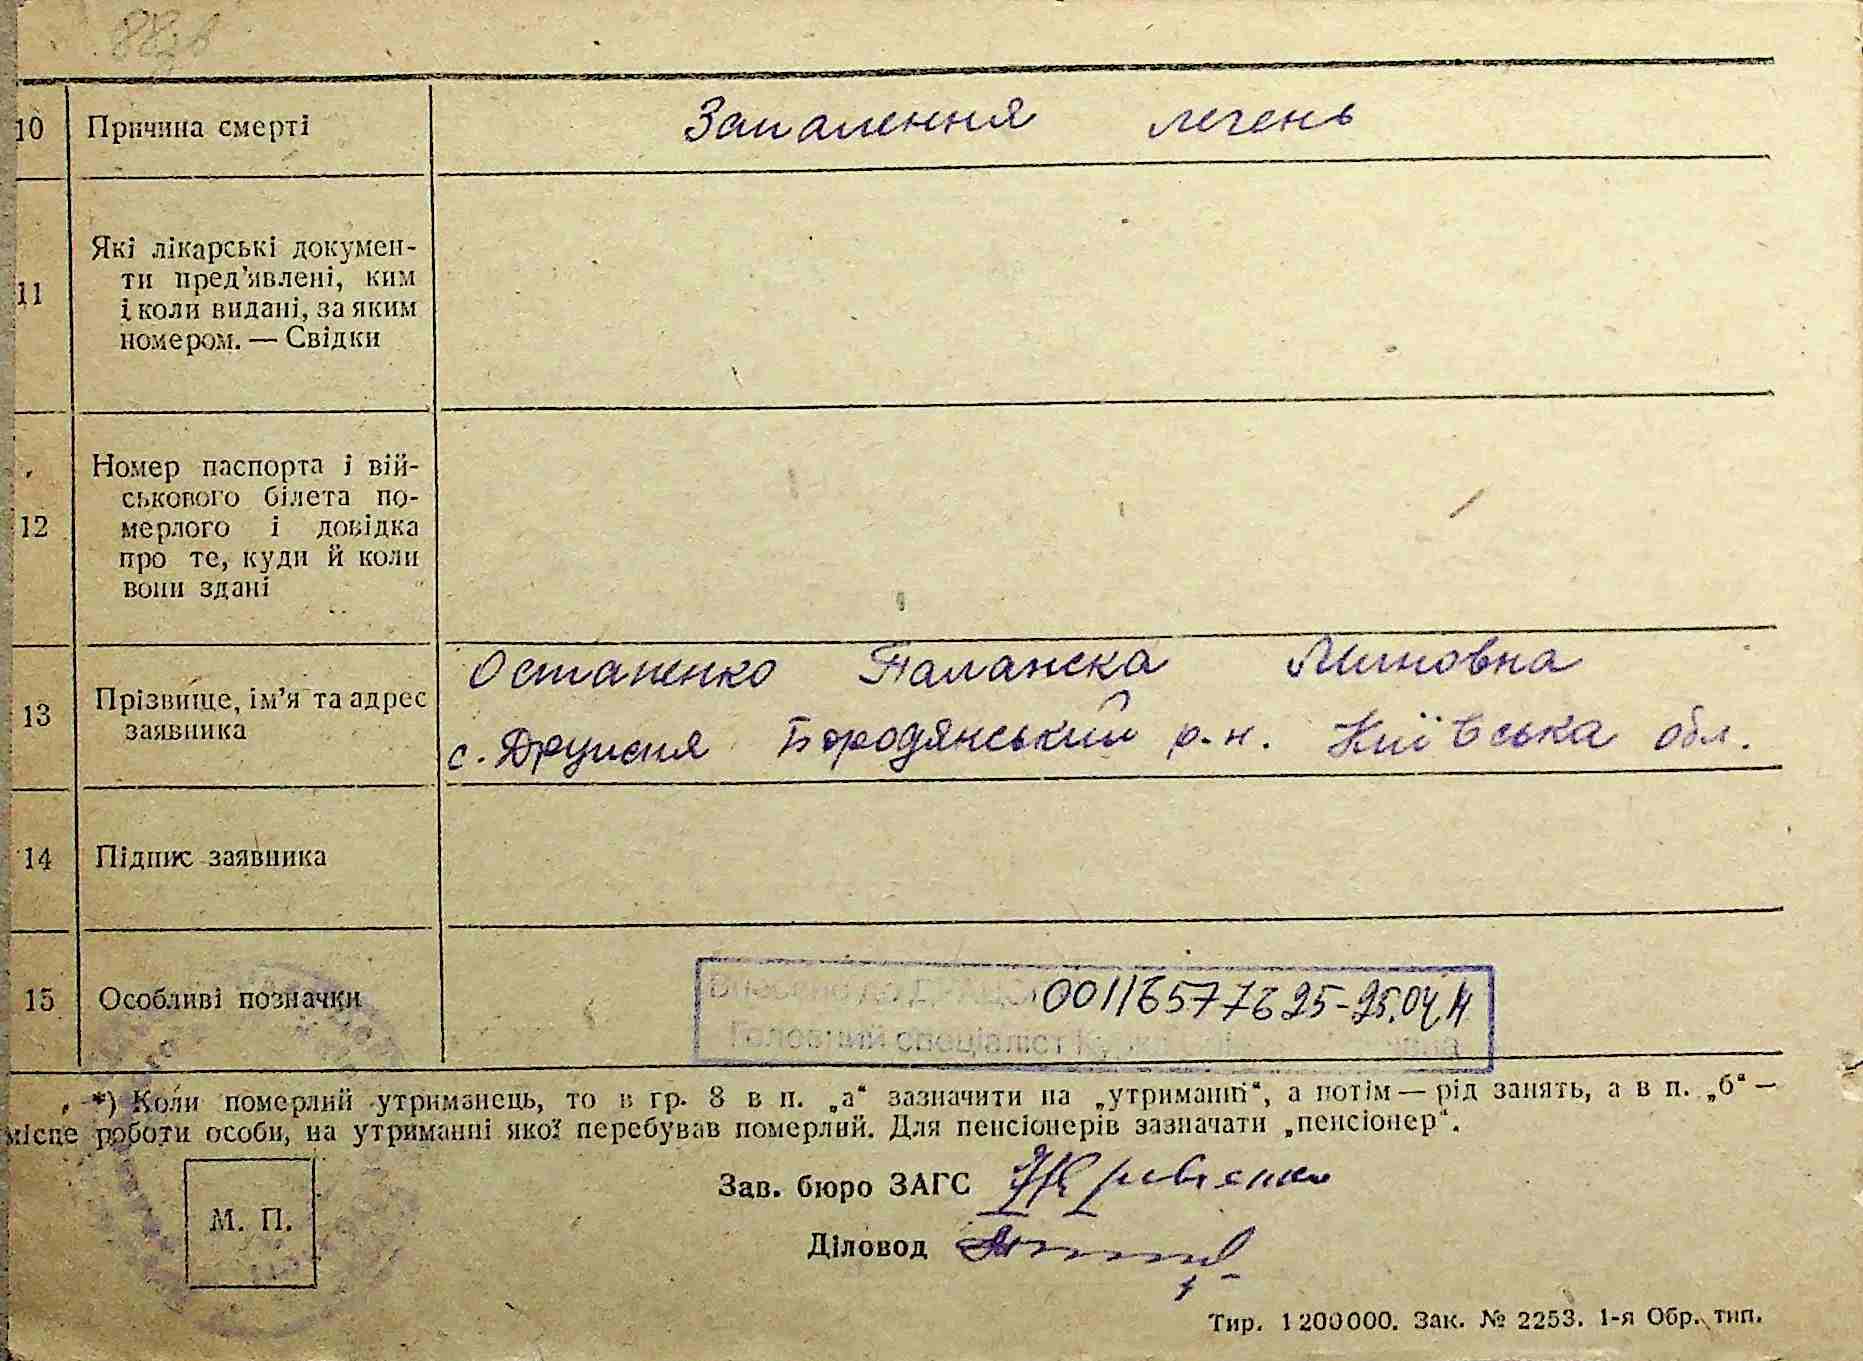 10 Причина смерті Запалення легень
11 Які лікарські докумен-
ти пред'явлені, ким
і коли видані, за яким
номером. — Свідки
12 Номер паспорта і вій-
ськового білета по-
мерлого і довідка
про те, куди й коли
вони здані
13 Прізвище, ім'я та адрес
заявника
Остапенко Палажка
с. Бородянський р-н. Київська обл.
14 Підпис заявника
15 Особливі позначки
00116577625-25.04
Головний спеціаліст
*) Коли померлий утриманець, то в гр. 8 в п. „а“ зазначити на „утриманні“, а потім — рід занять, а в п. „б“ —
місце роботи особи, на утриманні якої перебував померлий. Для пенсіонерів зазначати „пенсіонер“.
М. П.
Зав. бюро ЗАГС
Діловод
Тир. 1200000. Зак. № 2253. 1-я Обр. тип.